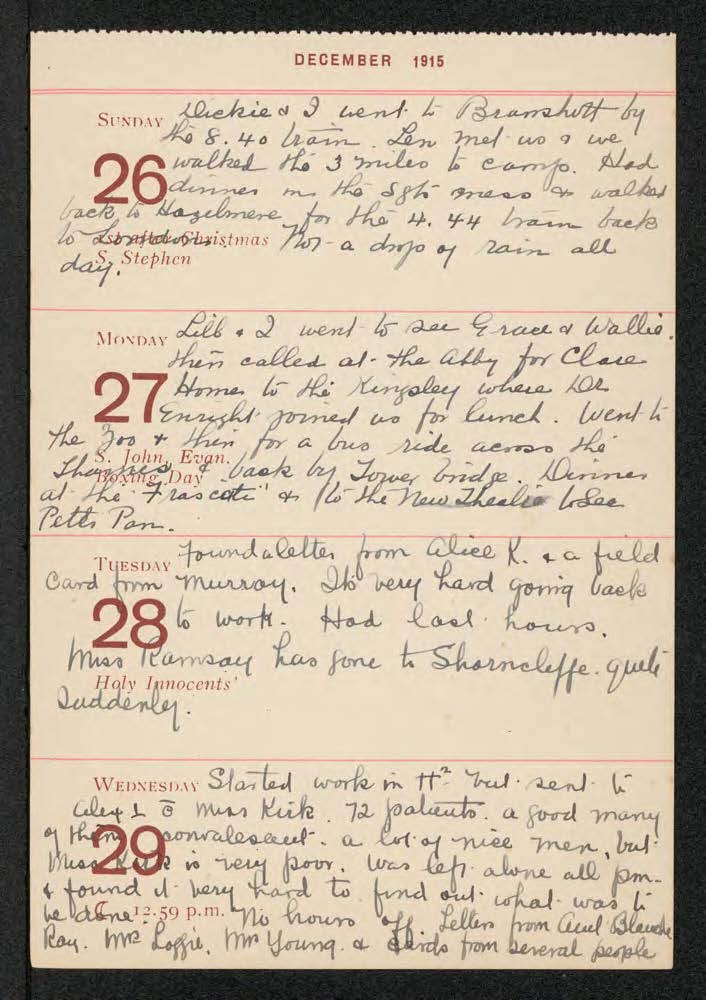 DECEMBER 1915
SUNDAY Dickie & I went to Bramshott by
the 8.40 train. Len met us & we
26 walked the 3 miles to camp. Had
dinner in the Sgts mess & walked
back to Hazelmere for the 4.44 train back
to London. Not a drop of rain all
1st after Christmas
S. Stephen
day.
MONDAY Lill & I went to see Grace & Wallie.
then called at the Abby for Clare
27 Home to the Kingsley where Dr
Enright joined us for lunch. Went to
the Zoo & then for a bus ride across the
S. John, Evan.
Thames & back by Tower bridge. Dinner
Boxing Day
at the "Frascati" & to the New Theatre to see
Peter Pan.
TUESDAY Found a letter from Alice K. & a field
Card from Murray. Its very hard going back
28 to work. Had last hours.
Miss Ramsay has gone to Shorncliffe. quite
Holy Innocents'
Suddenly.
WEDNESDAY Started work in H² but sent to
Alex 1 c̄ Miss Kirk. 72 patients. a good many
of them convalescent. a lot of nice men, but
29
Miss Kirk is very poor. Was left alone all pm.
& found it very hard to find out what was to
be done. No hours off. Letters from Aunt Blanche
12.59 p.m.
Ray. Mrs Loggie. Mrs Young. & Cards from several people